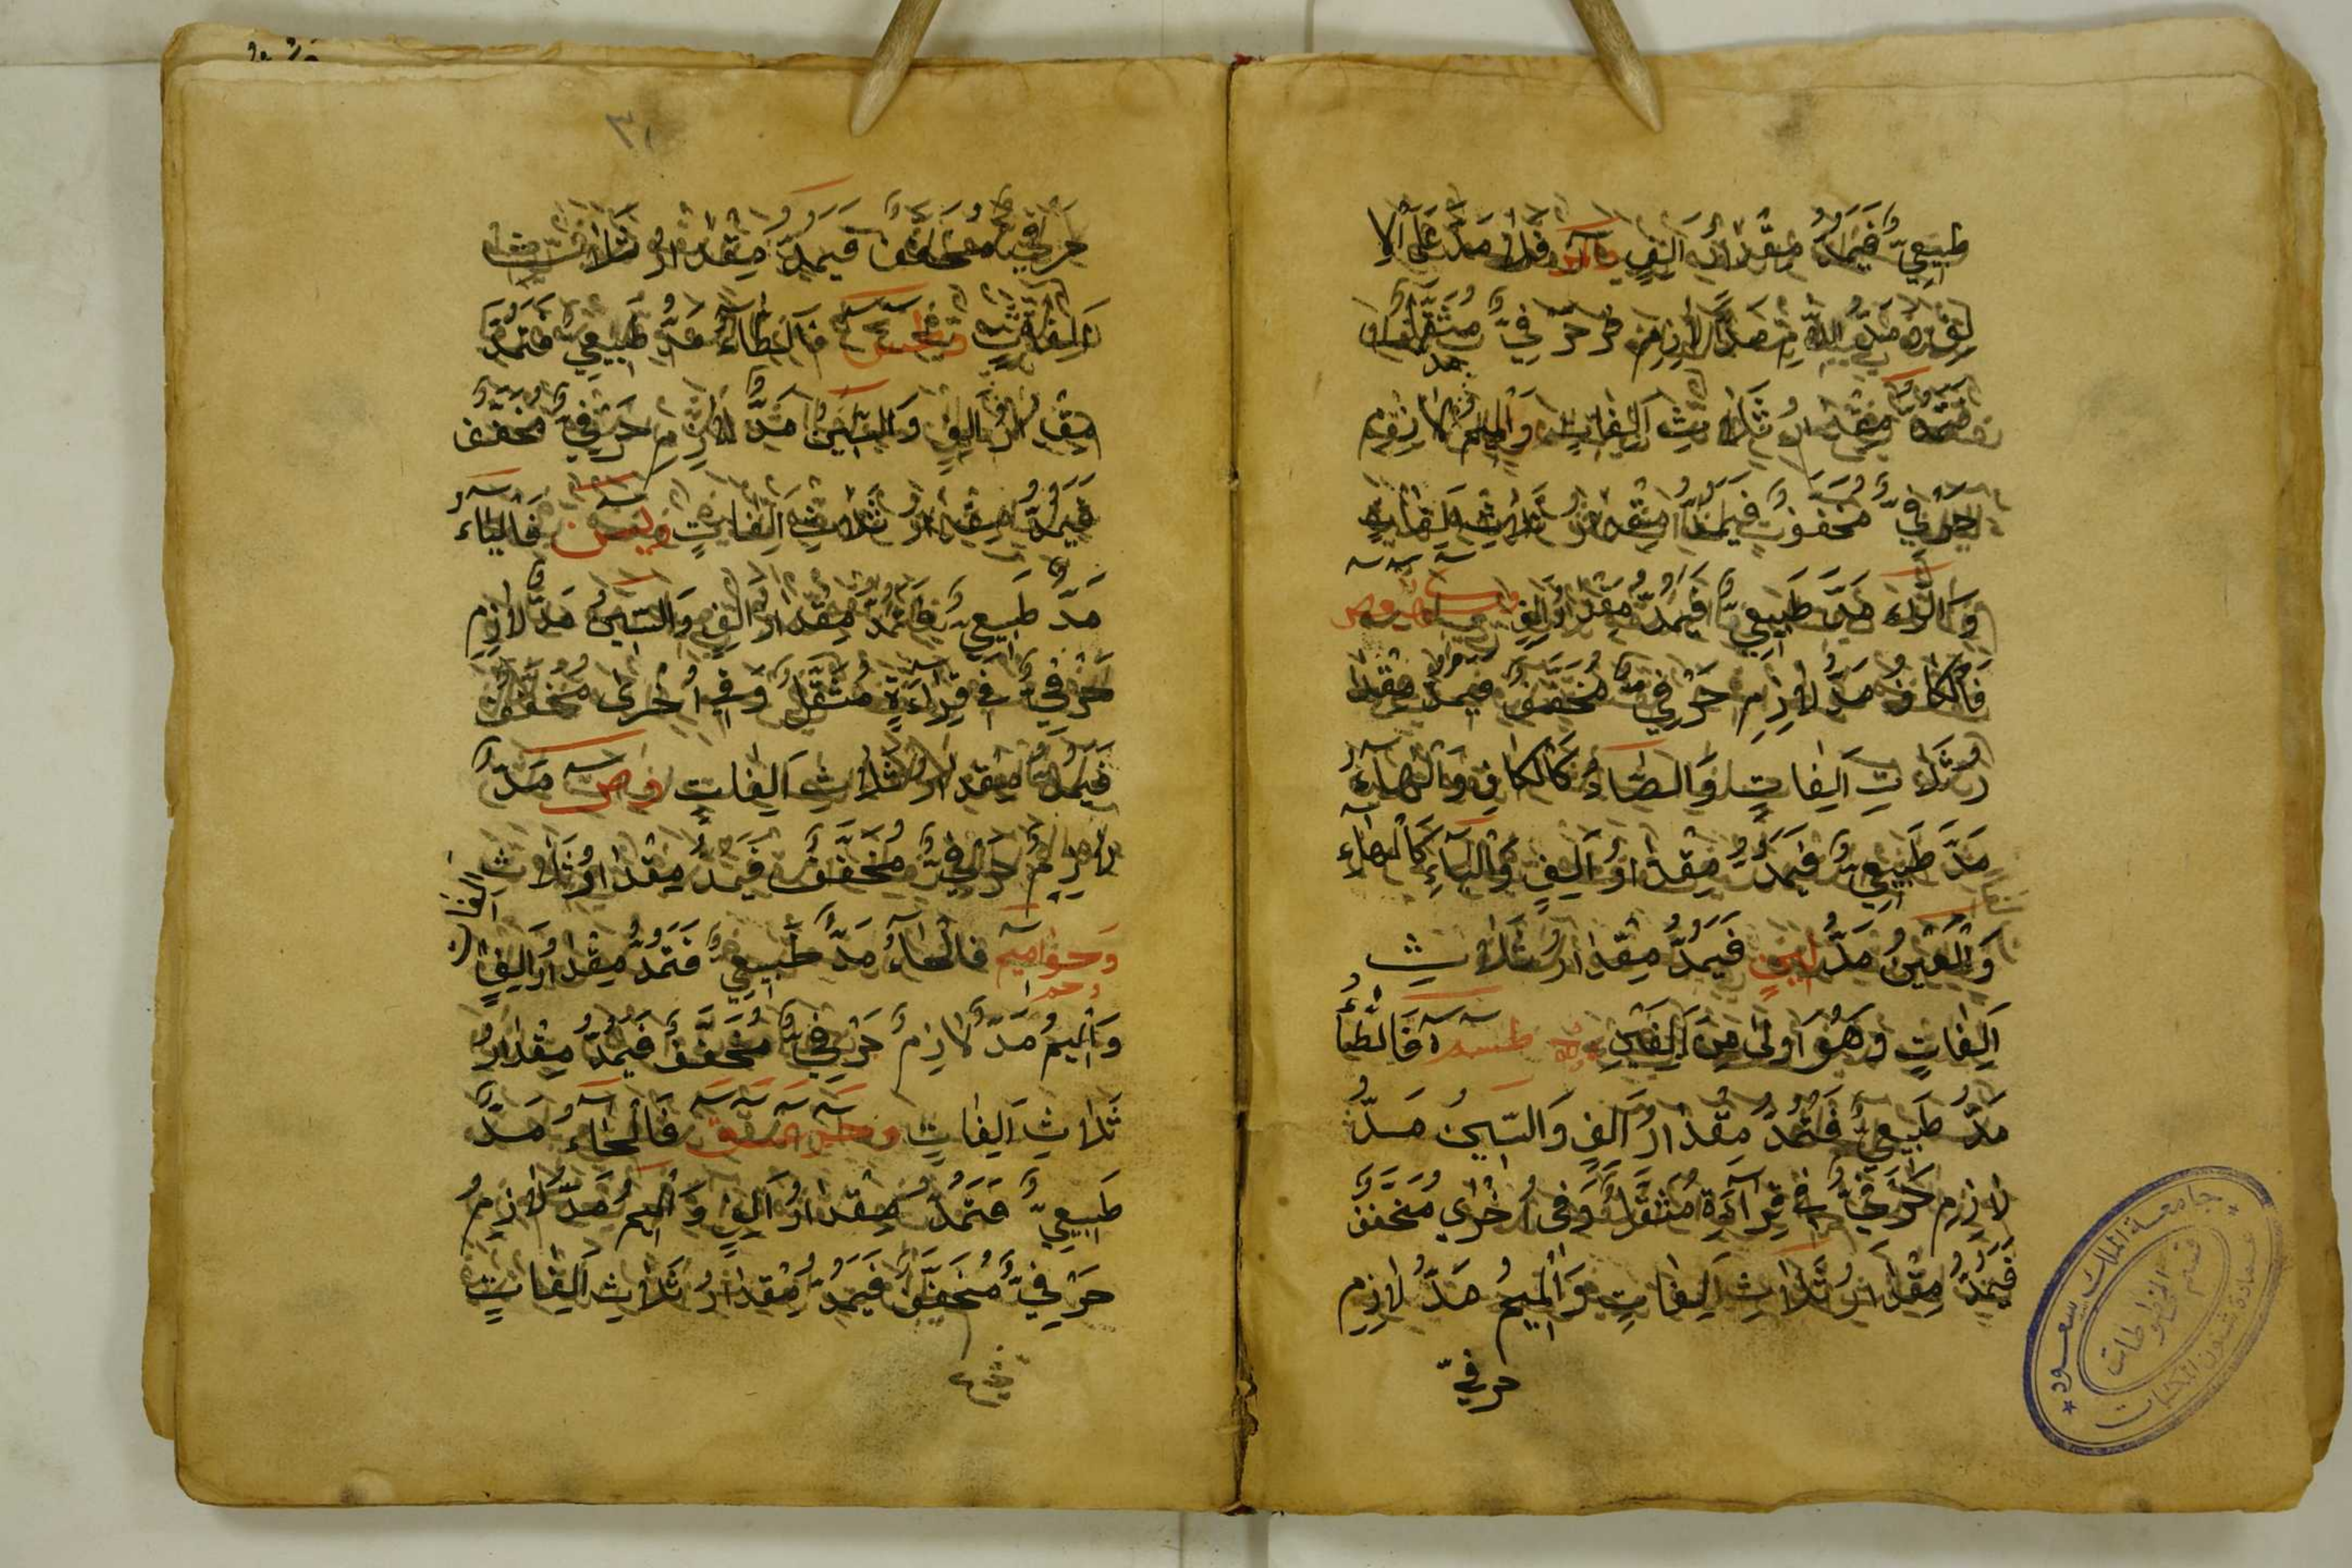 طَبِيعِيٌّ فَيُمَدُّ مِقْدَارُ اَلِفٍ فَلَا مَدَّ عَلَى الْاَ
لِفِ مَدٌّ لَازِمٌ حَرْفِيٌّ مُثَقَّلٌ
فَتُمَدُّ مِقْدَارُ ثَلَاثِ اَلِفَاتٍ وَالْمِيمُ لَازِمٌ
حَرْفِيٌّ مُخَفَّفٌ فَيُمَدُّ مِقْدَارُ ثَلَاثِ اَلِفَاتٍ
وَالرَّاء مَدٌّ طَبِيعِيٌّ فَيُمَدُّ مِقْدَارُ اَلِفٍ
فَالْكَافُ مَدٌّ لَازِمٌ حَرْفِيٌّ مُخَفَّفٌ فَيُمَدُّ مِقْدَا
رُ ثَلَاثِ اَلِفَاتٍ وَالصَّادُ كَالْكَافِ وَالْهَاءُ
مَدٌّ طَبِيعِيٌّ فَيُمَدُّ مِقْدَارُ اَلِفٍ وَالْيَاءِ كَالْهَاءِ
وَالْعَيْنُ مَدُّ لِينٍ فَيُمَدُّ مِقْدَارُ ثَلَاثِ
اَلِفَاتٍ وَهُوَ اَوْلٰى مِنْ اَلِفَيْنِ طسم فَالطَّاءُ
مَدٌّ طَبِيعِيٌّ فَتُمَدُّ مِقْدَارُ اَلِفٍ وَالسِّينُ مَدٌّ
لَازِم حَرْفِيٌّ فِي قِرَاءَةٍ مُثَقَّلٌ وَفِي اُخْرٰي مُخَفَّفٌ
فَيُمَدُّ مِقْدَارُ ثَلَاثِ اَلِفَاتٍ وَالْمِيمُ مَدٌّ لَازِم
حرفيّ
٣١
حَرْفِيٌّ مُخَفَّفٌ فَيُمَدُّ مِقْدَارُ ثَلَاثِ
اَلِفَاتٍ وطس فَالطَّاءُ مَدٌّ طَبِيعِيٌّ فَتُمَدُّ
مِقْدَارُ اَلِفٍ وَالسِّينُ مَدٌّ لَازِمٌ حَرْفِيٌّ مُخَفَّفٌ
فَيُمَدُّ مِقْدَارُ ثَلَاثِ اَلِفَاتٍ ويس فَالْيَاءُ
مَدٌّ طَبِيعِيٌّ فَتُمَدُّ مِقْدَارُ اَلِفٍ وَالسِّينُ مَدٌّ لَازِم
حَرْفِيٌّ فِي قِرَاءَةٍ مُثَقَّلٌ وَفِي اُخْرٰى مُخَفَّفٌ
فَيُمَدُّ مِقْدَارُ ثَلَاثِ اَلِفَاتٍ وص مَدٌّ
لَازِمٌ حَرْفِيٌّ مُخَفَّفٌ فَيُمَدُّ مِقْدَارُ ثَلَاثِ الفات
وَحواميم فَالْحَاءُ مَدٌّ طَبِيعِيٌّ فَتُمَدُّ مِقْدَارُ اَلِفٍ
وَالْمِيمُ مَدٌّ لَازِمٌ حَرْفِيٌّ مُخَفَّفٌ فَيُمَدُّ مِقْدَارُ
ثَلَاثِ اَلِفَاتٍ وحم عسق فَالْحَاءُ مَدٌّ
طَبِيعِيٌّ فَتُمَدُّ مِقْدَارُ اَلِفٍ وَالْمِيم مَدٌّ لَازِمٌ
حَرْفِيٌّ مُخَفَّفٌ فَيُمَدُّ مِقْدَارُ ثَلَاثِ اَلِفَاتٍ
جامعة الملك سعود
عمادة شئون المكتبات
قسم المخطوطات